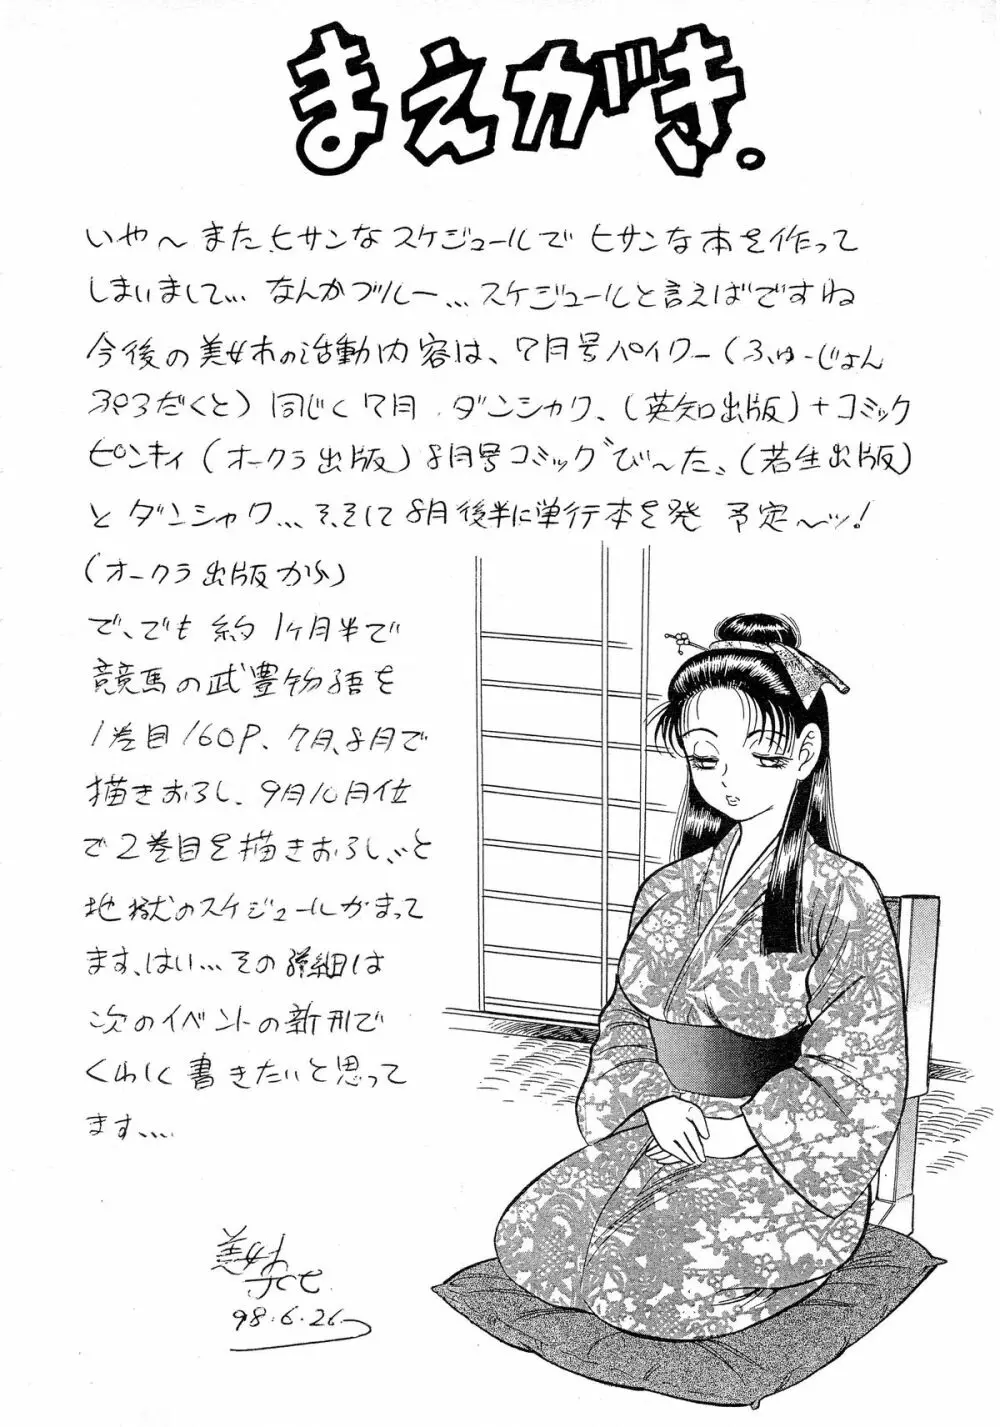 まえがき。
いや〜また、ヒサンなスケジュールでヒサンな本を作って
しまいまして… なんかブルー…スケジュールと言えばですね
今後の美女木の活動内容は、7月号パイクー(ふゅーじょん
ぷろだくと)同じく7月 ダンシャク、(英知出版)+コミック
ピンキィ(オークラ出版)8月号コミックび〜た、(若生出版)
とダンシャク…そ、そして8月後半に単行本を発 予定〜ッ!
(オークラ出版から)
で、でも 約1ヶ月半で
競馬の武豊物語を
1巻目160P、7月、8月で
描きおろし、9月10月位
で2巻目を描きおろし、と
地獄のスケジュールがまって
ます、はい…その詳細は
次のイベントの新刊で
くわしく書きたいと思って
ます….
美女木
98.6.26